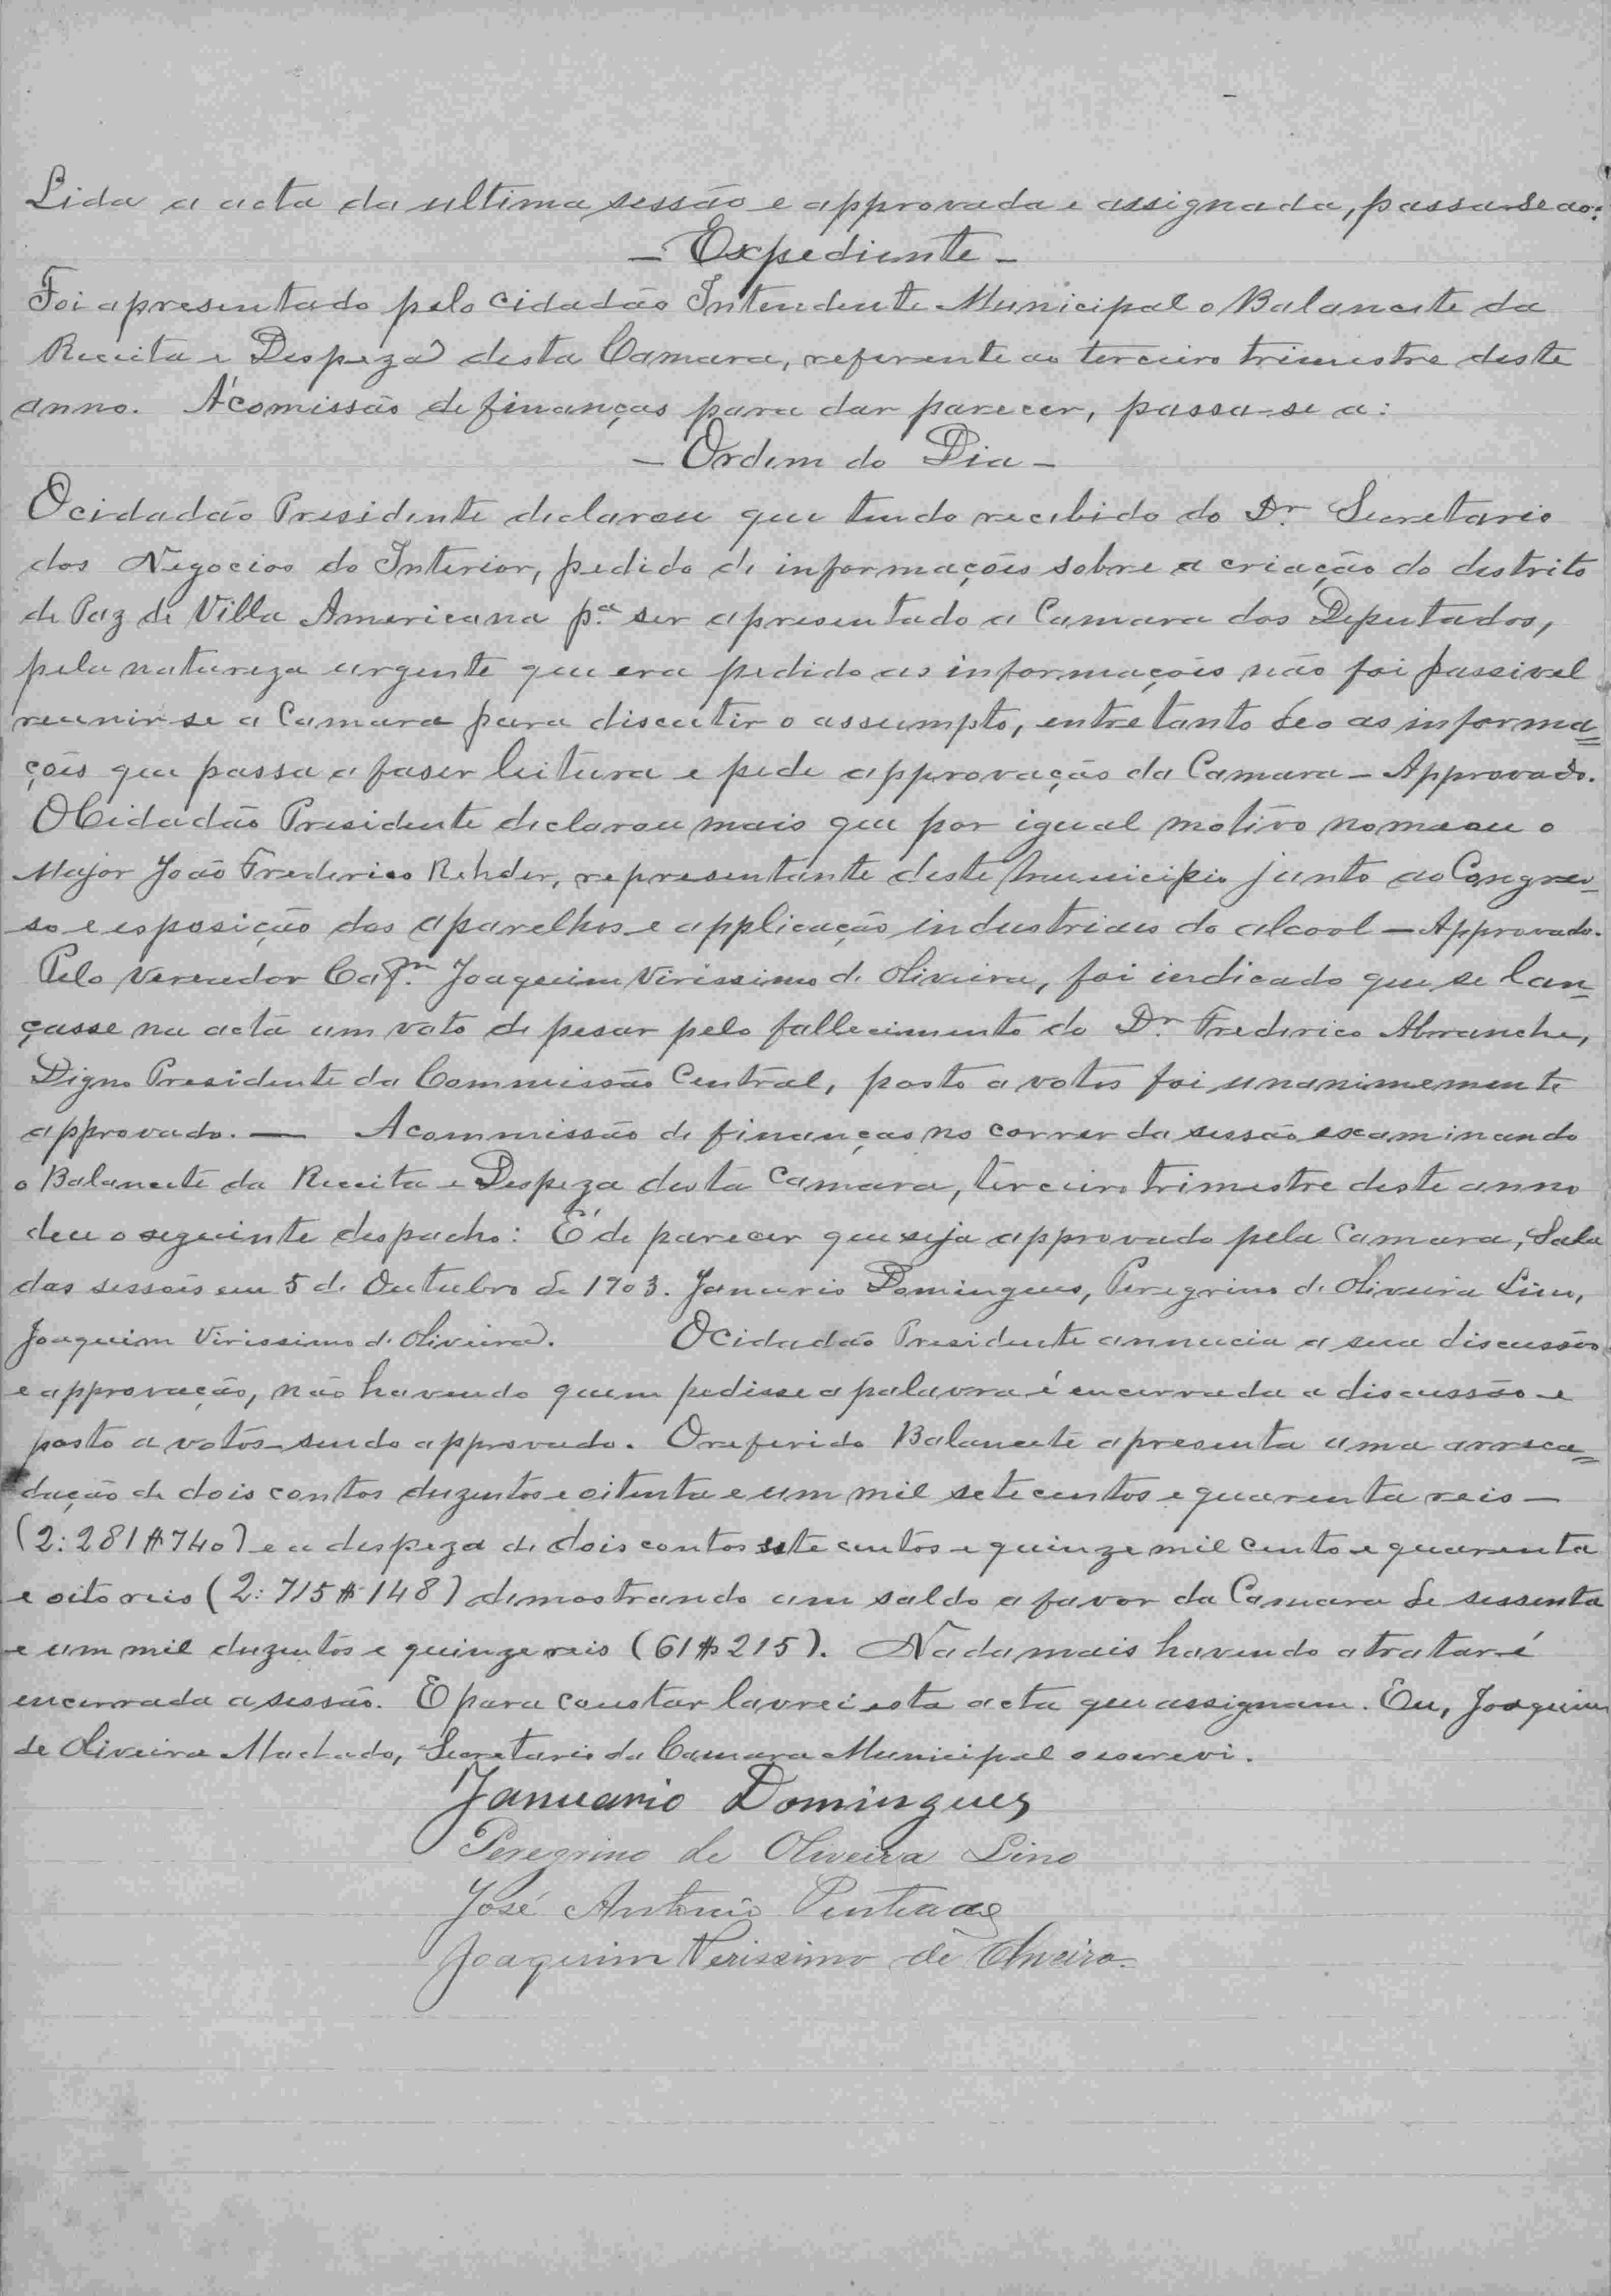 Lida a acta da ultima sessão e approvada e assignada, passa-se ao:
— Expediente —
Foi apresentado pelo cidadão Intendente Municipal o Balancete da
Receita e Despeza desta Camara, referente ao terceiro trimestre deste
anno. Á comissão de finanças para dar parecer, passa-se a:
— Ordem do Dia —
O cidadão Presidente declarou que tendo recebido do Dr. Secretario
dos Negocios do Interior, pedido de informações sobre a criação do destrito
de Paz de Villa Americana pª ser apresentado a Camara dos Deputados,
pela natureza urgente que era pedido as informações não foi passivel
reunir-se a Camara para discutir o assumpto, entretanto deo as informa=
ções que passa a faser leitura e pede approvação da Camara — Approvado.
O Cidadão Presidente declarou mais que por igual motivo nomeou o
Major João Frederico Rehder, representante deste municipio junto ao Congres-
so e esposição dos aparelhos e applicação industriaes do alcool — Approvado.
Pelo Vereador Capm. Joaquim Virissimo de Oliveira, foi indicado que se lan=
çasse na acta um voto de pesar pelo fallecimento do Dr. Frederico Abranche,
Digno Presidente da Commissão Central, posto a votos foi unanimemente
approvado. — A commissão de finanças no correr da sessão examinando
o Balancete da Receita e Despeza desta Camara, terceiro trimestre deste anno
deu o seguinte despacho: É de parecer que seja approvado pela Camara, Sala
das sessões em 5 de Outubro de 1903. Januario Domingues, Peregrino de Oliveira Lino,
Joaquim Virissimo de Oliveira. O Cidadão Presidente annucia a sua discussão
e approvação, não havendo quem pedisse a palavra é encerrada a discussão e
posto a votos sendo approvado. O referido Balancete apresenta uma arreca=
dação de dois contos duzentos e oitenta e um mil sete centos e quarenta reis —
(2:281$740) e a despeza de dois contos sete centos e quinze mil cento e quarenta
e oito reis (2:715$148) demostrando um saldo a favor da Camara de sessenta
e um mil duzentos e quinze reis (61$215). Nada mais havendo a tratar é
encerrada a sessão. E para constar lavrei esta acta que assignam. Eu, Joaquim
de Oliveira Machado, Secretario da Camara Municipal o escrevi.
Januario Domingues
Peregrino de Oliveira Lino
José Antonio Penteado
Joaquim Verissimo de Oliveira